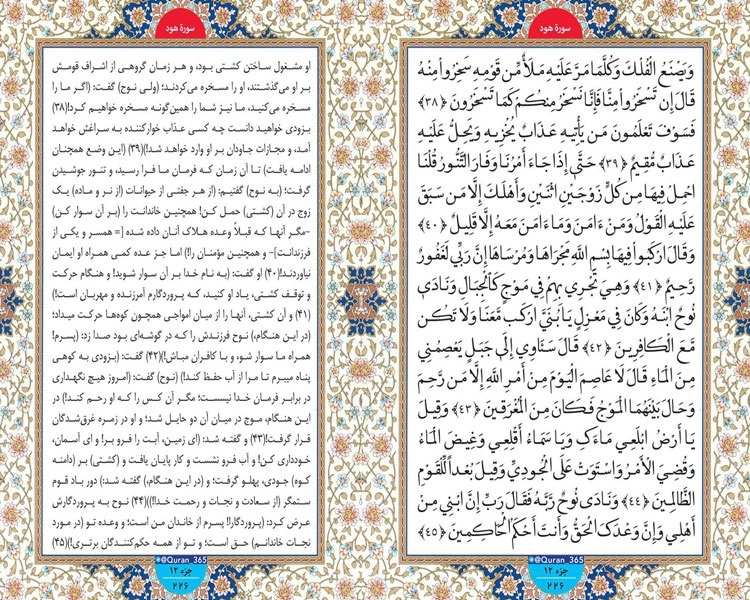 سورهٔ هود
وَيَصْنَعُ الْفُلْكَ وَكُلَّمَا مَرَّ عَلَيْهِ مَلَأٌ مِّن قَوْمِهِ سَخِرُوا مِنْهُ
قَالَ إِن تَسْخَرُوا مِنَّا فَإِنَّا نَسْخَرُ مِنكُمْ كَمَا تَسْخَرُونَ ﴿٣٨﴾
فَسَوْفَ تَعْلَمُونَ مَن يَأْتِيهِ عَذَابٌ يُخْزِيهِ وَيَحِلُّ عَلَيْهِ
عَذَابٌ مُّقِيمٌ ﴿٣٩﴾ حَتَّى إِذَا جَاءَ أَمْرُنَا وَفَارَ التَّنُّورُ قُلْنَا
احْمِلْ فِيهَا مِن كُلٍّ زَوْجَيْنِ اثْنَيْنِ وَأَهْلَكَ إِلَّا مَن سَبَقَ
عَلَيْهِ الْقَوْلُ وَمَنْ ءَامَنَ وَمَا ءَامَنَ مَعَهُ إِلَّا قَلِيلٌ ﴿٤٠﴾
وَقَالَ ارْكَبُوا فِيهَا بِسْمِ اللَّهِ مَجْرَاهَا وَمُرْسَاهَا إِنَّ رَبِّي لَغَفُورٌ
رَّحِيمٌ ﴿٤١﴾ وَهِيَ تَجْرِي بِهِمْ فِي مَوْجٍ كَالْجِبَالِ وَنَادَى
نُوحٌ ابْنَهُ وَكَانَ فِي مَعْزِلٍ يَا بُنَيَّ ارْكَب مَّعَنَا وَلَا تَكُن
مَّعَ الْكَافِرِينَ ﴿٤٢﴾ قَالَ سَآوِي إِلَى جَبَلٍ يَعْصِمُنِي
مِنَ الْمَاءِ قَالَ لَا عَاصِمَ الْيَوْمَ مِنْ أَمْرِ اللَّهِ إِلَّا مَن رَّحِمَ
وَحَالَ بَيْنَهُمَا الْمَوْجُ فَكَانَ مِنَ الْمُغْرَقِينَ ﴿٤٣﴾ وَقِيلَ
يَا أَرْضُ ابْلَعِي مَاءَكِ وَيَا سَمَاءُ أَقْلِعِي وَغِيضَ الْمَاءُ
وَقُضِيَ الْأَمْرُ وَاسْتَوَتْ عَلَى الْجُودِيِّ وَقِيلَ بُعْداً لِّلْقَوْمِ
الظَّالِمِينَ ﴿٤٤﴾ وَنَادَى نُوحٌ رَّبَّهُ فَقَالَ رَبِّ إِنَّ ابْنِي مِنْ
أَهْلِي وَإِنَّ وَعْدَكَ الْحَقُّ وَأَنتَ أَحْكَمُ الْحَاكِمِينَ ﴿٤٥﴾
@Quran_365
جزء ۱۲
۲۲۶
سورهٔ هود
او مشغول ساختن کشتی بود، و هر زمان گروهی از اشراف قومش
بر او می‌گذشتند، او را مسخره می‌کردند؛ (ولی نوح) گفت: (اگر ما را
مسخره می‌کنید، ما نیز شما را همین‌گونه مسخره خواهیم کرد!(۳۸)
بزودی خواهید دانست چه کسی عذاب خوارکننده به سراغش خواهد
آمد، و مجازات جاودان بر او وارد خواهد شد!)(۳۹) (این وضع همچنان
ادامه یافت) تا آن زمان که فرمان ما فرا رسید، و تنور جوشیدن
گرفت؛ (به نوح) گفتیم: (از هر جفتی از حیوانات (از نر و ماده) یک
زوج در آن (کشتی) حمل کن! همچنین خاندانت را (بر آن سوار کن)
-مگر آنها که قبلاً وعده هلاک آنان داده شده [= همسر و یکی از
فرزندانت]- و همچنین مؤمنان را!) اما جز عده کمی همراه او ایمان
نیاوردند!(۴۰) او گفت: (به نام خدا بر آن سوار شوید! و هنگام حرکت
و توقف کشتی، یاد او کنید، که پروردگارم آمرزنده و مهربان است!)
(۴۱) و آن کشتی، آنها را از میان امواجی همچون کوه‌ها حرکت میداد؛
(در این هنگام،) نوح فرزندش را که در گوشه‌ای بود صدا زد: (پسرم!
همراه ما سوار شو، و با کافران مباش!)(۴۲) گفت: (بزودی به کوهی
پناه میبرم تا مرا از آب حفظ کند!) (نوح) گفت: (امروز هیچ نگهداری
در برابر فرمان خدا نیست؛ مگر آن کس را که او رحم کند!) در
این هنگام، موج در میان آن دو حایل شد؛ و او در زمره غرق‌شدگان
قرار گرفت!(۴۳) و گفته شد: (ای زمین، آبت را فرو بر! و ای آسمان،
خودداری کن! و آب فرو نشست و کار پایان یافت و (کشتی) بر (دامنه
کوه) جودی، پهلو گرفت؛ و (در این هنگام،) گفته شد:( دور باد قوم
ستمگر (از سعادت و نجات و رحمت خدا!))(۴۴) نوح به پروردگارش
عرض کرد: (پروردگارا! پسرم از خاندان من است؛ و وعده تو (در مورد
نجات خاندانم) حق است؛ و تو از همه حکم‌کنندگان برتری!)(۴۵)
@Quran_365
جزء ۱۲
۲۲۶